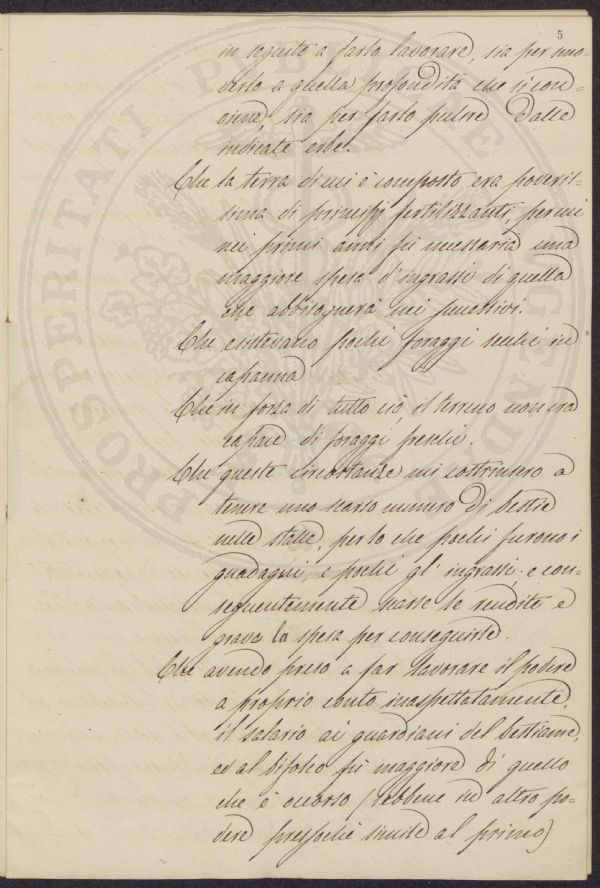 5
in seguito a farlo lavorare, sia per muo-
verlo a quella profondità che si con-
viene, sia per farlo pulire dalle
indicate erbe.
Che la terra di cui è composto era poveris-
sima di principj fertilizzanti, per cui
nei primi anni fù necessaria una
maggiore spesa d'ingrassi di quella
che abbisognerà nei successivi.
Che esistevano pochi foraggi secchi in
capanna
Che in forza di tutto ciò, il terreno non era
capace di foraggi freschi.
Che queste circostanze mi costrinsero a
tenere uno scarso numero di bestie
nelle stalle, perlo che pochi furono i
guadagni, e pochi gl'ingrassi; e con-
seguentemente scarse le rendite e
grave la spesa per conseguirle.
Che avendo preso a far lavorare il podere
a proprio conto inaspettatamente,
il salario ai guardiani del bestiame,
ed al bifolco fù maggiore di quello
che è occorso (sebbene in altro po-
dere pressochè simile al primo)
PROSPERITATI PUBLICAE AUGENDAE